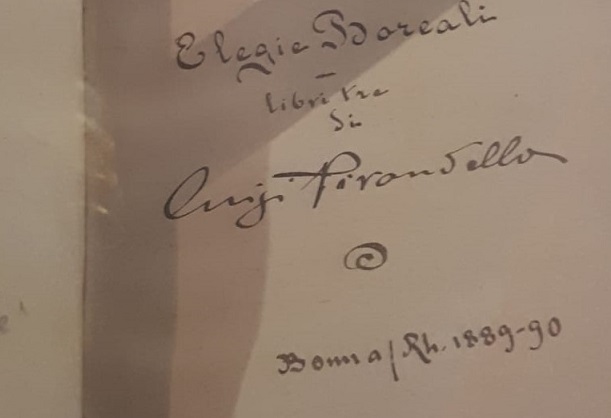 Elegie Boreali
libri tre
di
Luigi Pirandello
Bonn a/Rh. 1889-90